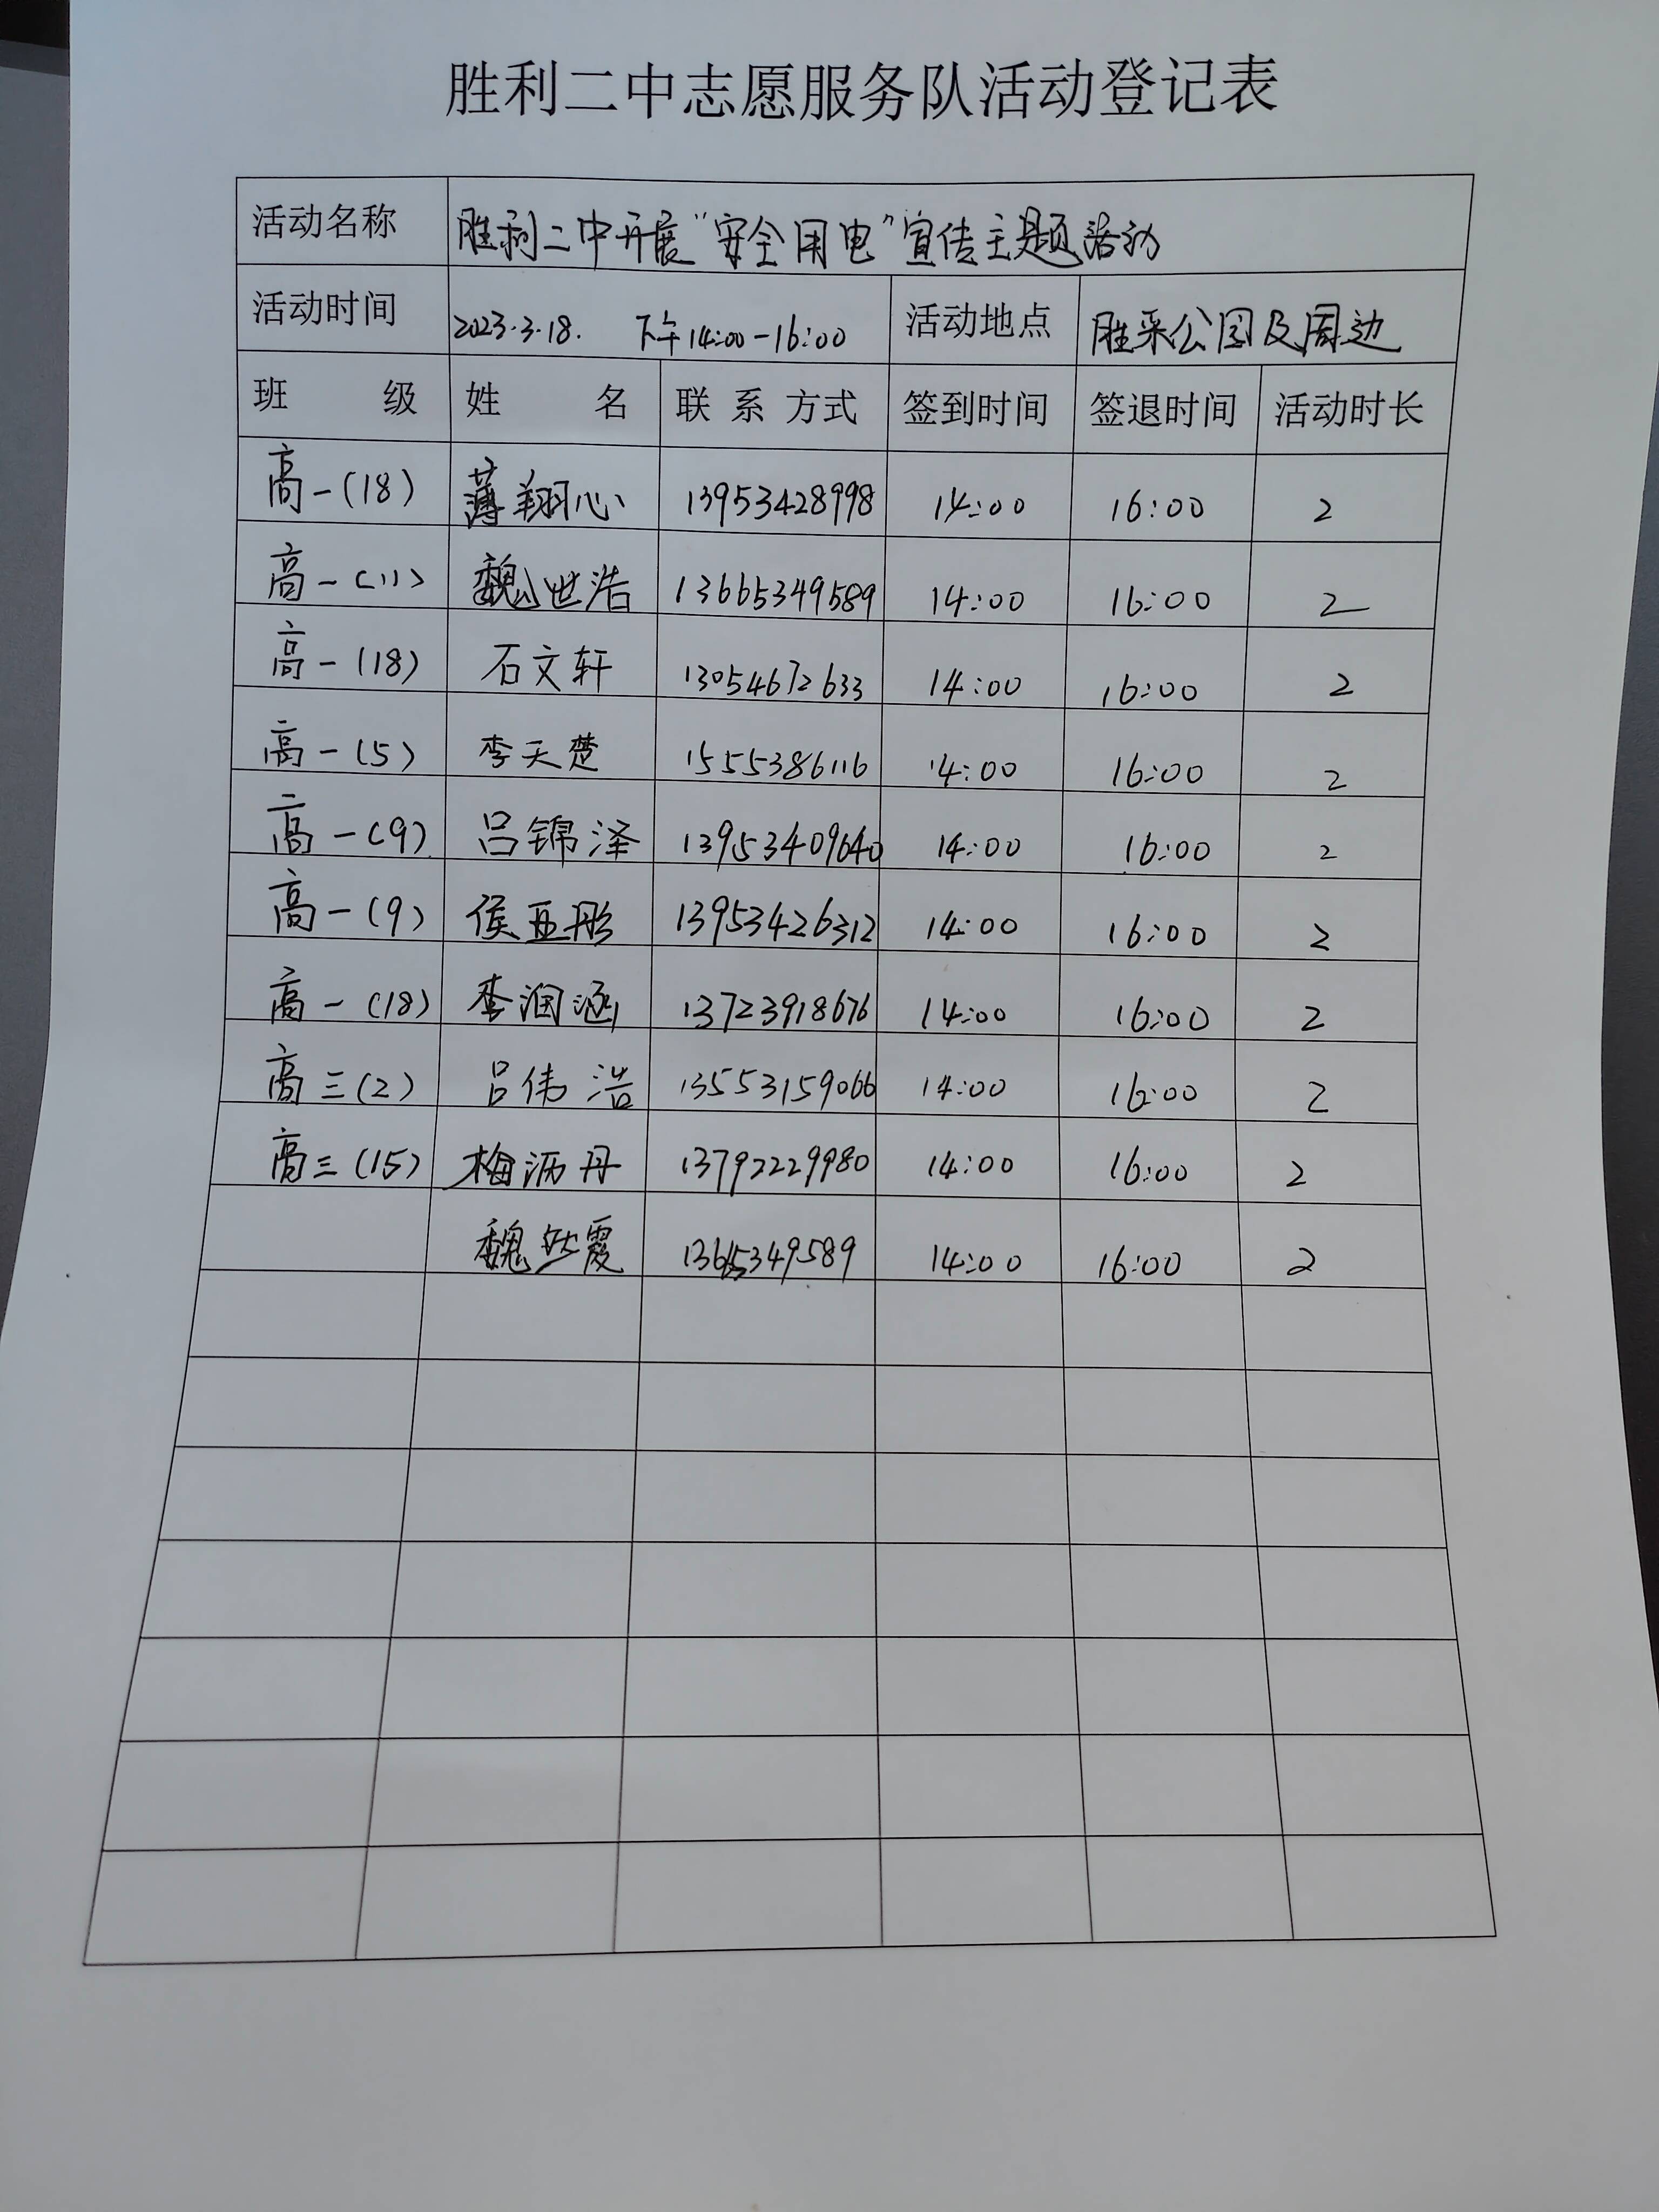 胜利二中志愿服务队活动登记表
活动名称 胜利二中开展“安全用电”宣传主题活动
活动时间 2023.3.18. 下午14:00-16:00 活动地点 胜采公园及周边
班 级 姓 名 联系方式 签到时间 签退时间 活动时长
高一(18) 薄翔心 13953428998 14:00 16:00 2
高一(11) 魏世浩 13665349589 14:00 16:00 2
高一(18) 石文轩 13054672633 14:00 16:00 2
高一(5) 李天楚 1555386116 14:00 16:00 2
高一(9) 吕锦泽 13953409640 14:00 16:00 2
高一(9) 侯亚彤 13953426312 14:00 16:00 2
高一(18) 李润涵 13723918676 14:00 16:00 2
高三(2) 吕伟浩 13553159066 14:00 16:00 2
高三(15) 梅沥丹 13792229980 14:00 16:00 2
魏 霞 14:00 16:00 2